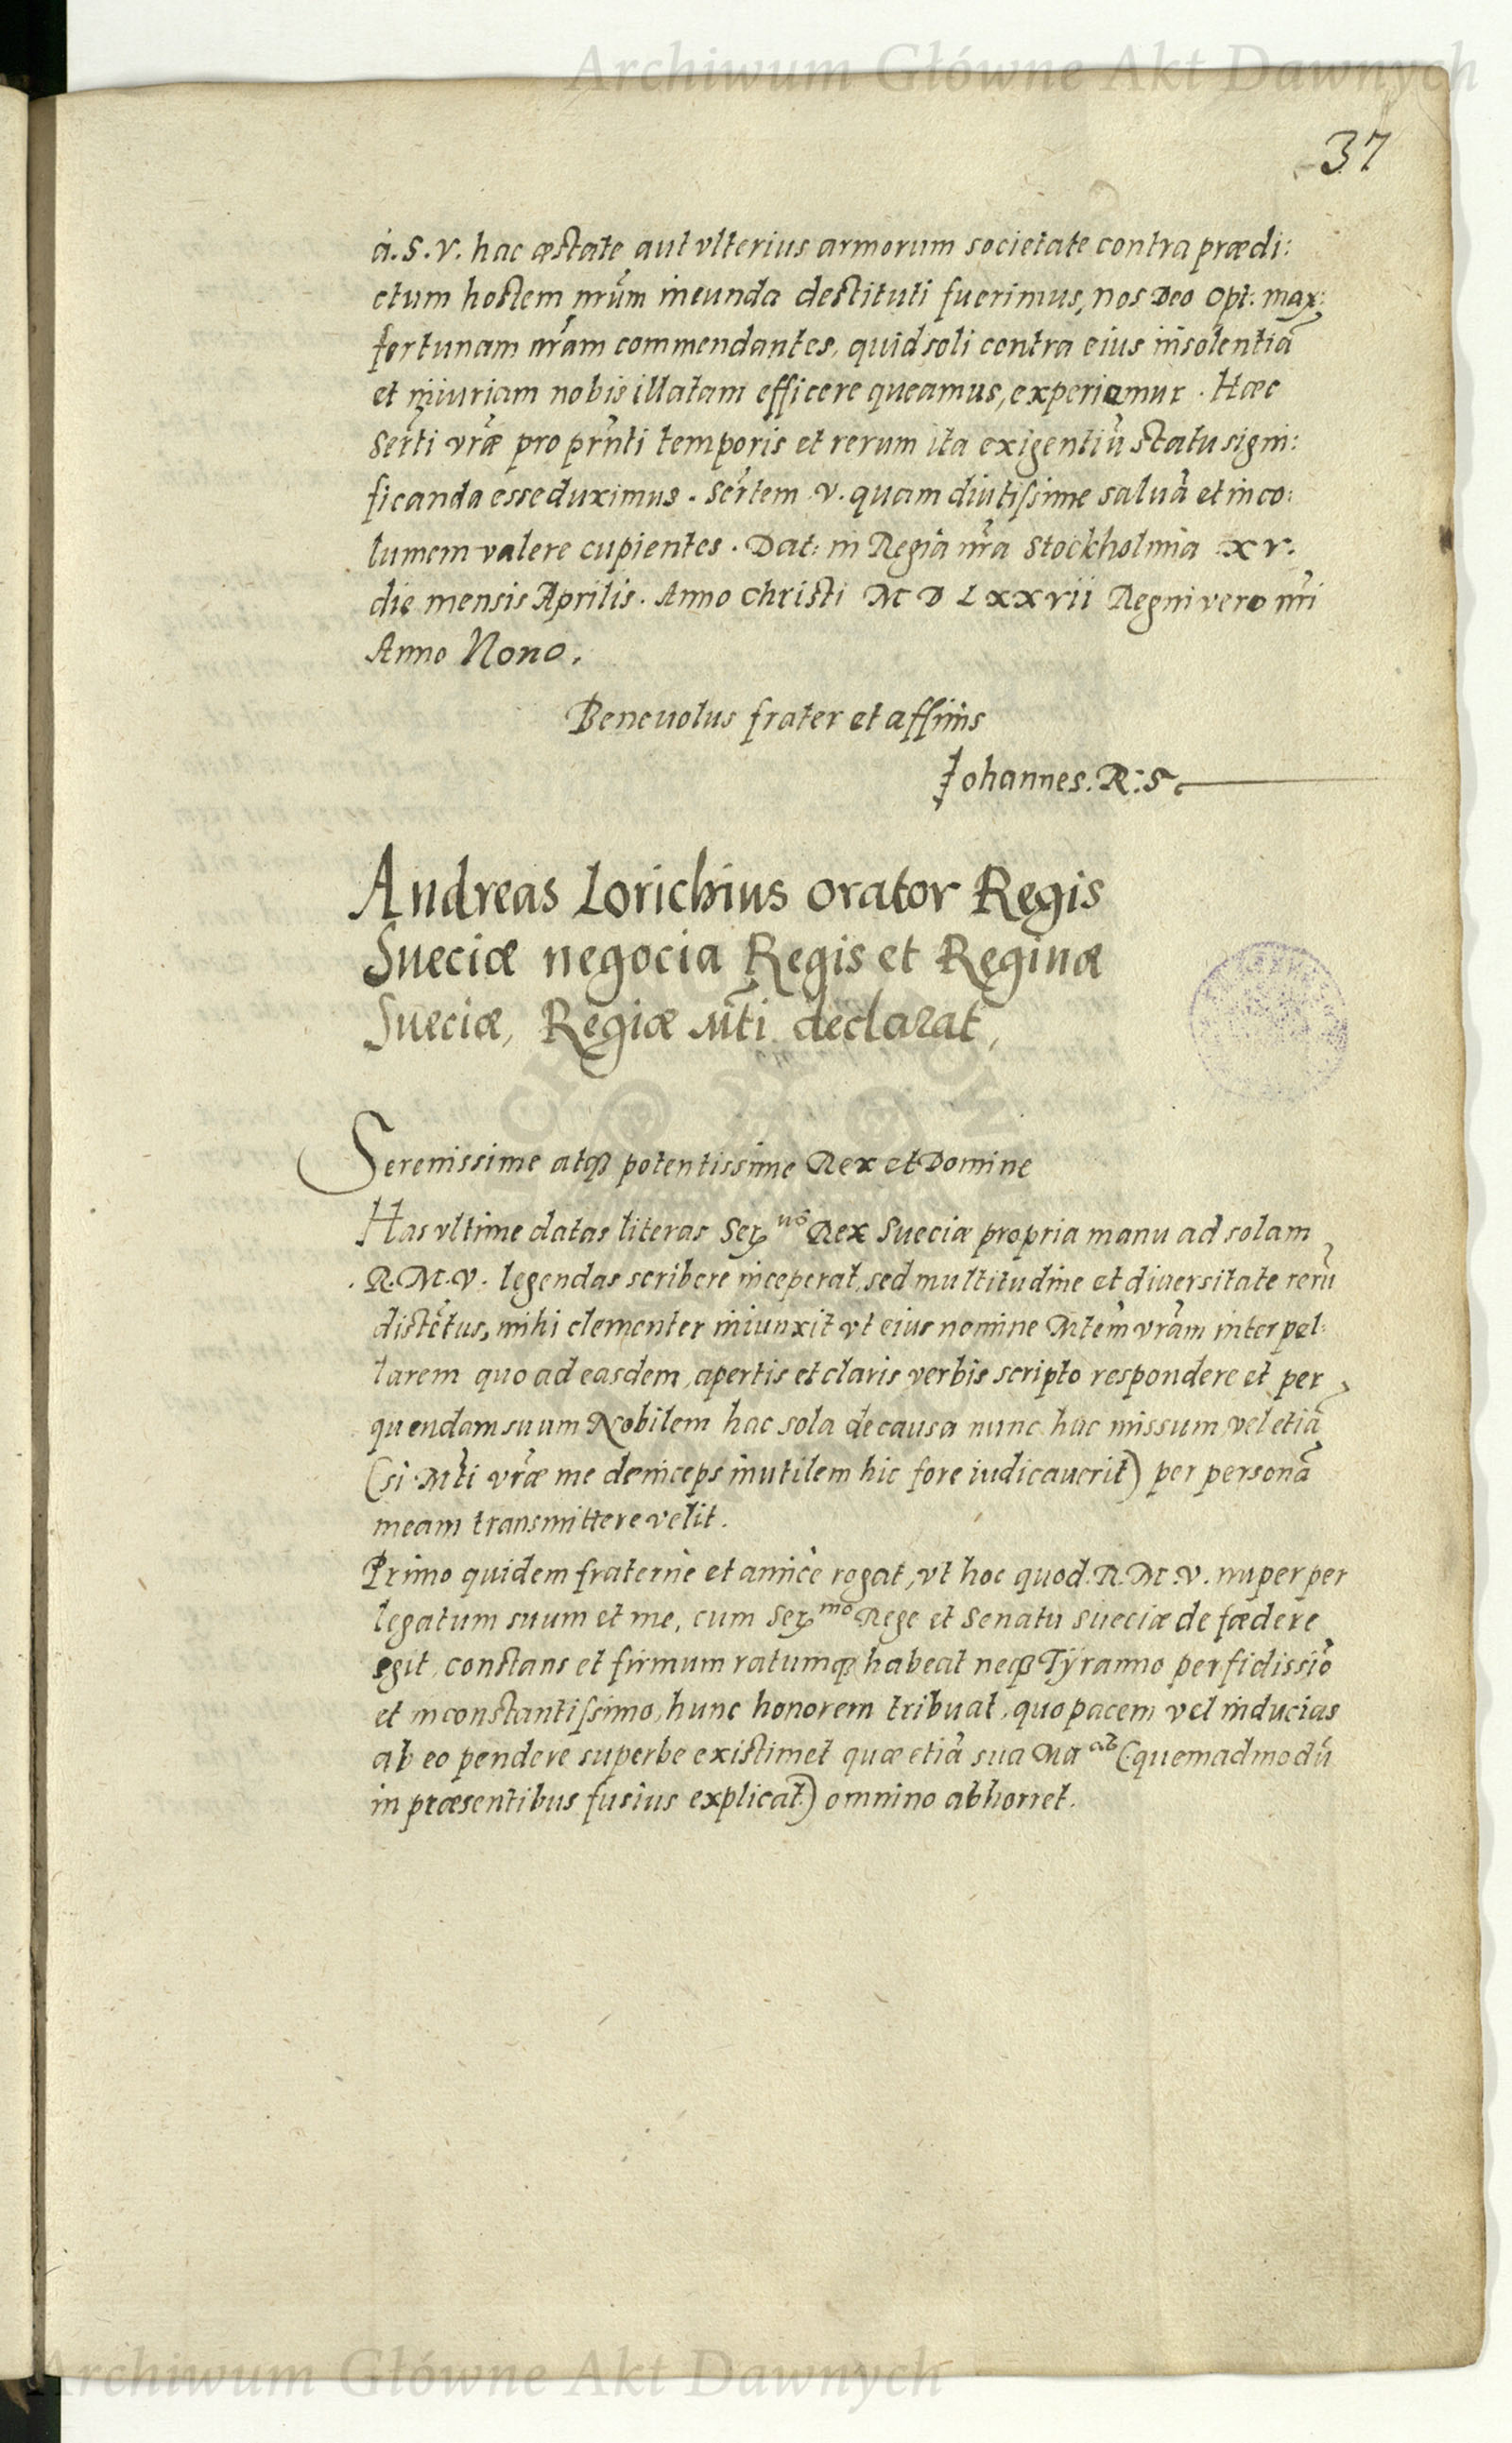 Archiwum Główne Akt Dawnych
37
à. S. V. hac æstate aut vlterius armorum societate contra prædi:
ctum hostem nr̃um ineunda destituti fuerimus, nos Deo Opt: max:
fortunam nr̃am commendantes, quid soli contra eius insolentiã
et iniuriam nobis illatam efficere queamus, experiamur. Hæc
Serti vr̃æ pro pr̃nti temporis et rerum ita exigentiũ statu signi:
ficanda esse duximus. Sertem V. quam diutissime saluã et inco:
lumem valere cupientes. Dat: in Regia nr̃a Stockholmia XV.
die mensis Aprilis. Anno Christi M D LXXVII Regni vero nr̃i
Anno Nono.
Beneuolus frater et affinis
Johannes. R: S
Andreas Lorichius orator Regis
Sueciæ negocia Regis et Reginæ
Sueciæ, Regiæ Mti declarat,
Serenissime atq₃ potentissime Rex et Domine
Has vltime datas literas Ser.mus Rex Sueciæ propria manu ad solam
R. M. V. legendas scribere inceperat, sed multitudine et diuersitate rerũ
distẽtus, mihi clementer iniunxit vt eius nomine Mtem vr̃am interpel:
larem quo ad easdem, apertis et claris verbis scripto respondere et per
quendam suum Nobilem hac sola de causa nunc huc missum, vel etiã
(si Mti vr̃æ me deinceps inutilem hic fore iudicauerit) per personã
meam transmittere velit.
Primo quidem fraternè et amicè rogat, vt hoc quod R. M. V. nuper per
legatum suum et me, cum Ser.mo Rege et Senatu Sueciæ de fædere
egit, constans et firmum ratumq₃ habeat neq₃ Tÿranno perfidissiõ
et inconstantissimo, hunc honorem tribuat, quo pacem vel inducias
ab eo pendere superbe existimet quæ etiã sua Mtas (quemadmodũ
in præsentibus fusius explicat) omnino abhorret.
Archiwum Główne Akt Dawnych